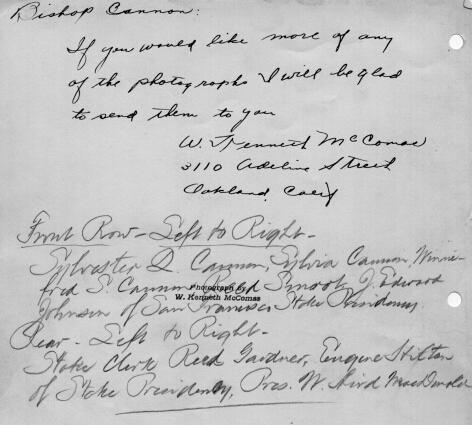 Bishop Cannon:
If you would like more of any
of the photographs I will be glad
to send them to you
W. Kenneth McComas
3110 Adeline Street
Oakland, Calif
Front Row - Left to Right -
Sylvester Q. Cannon, Sylvia Cannon, Winni-
fred S. Cannon, Smoot, J. Edward
Photograph by
W. Kenneth McComas
Johnson of San Francisco Stake Presidency
Rear - Left to Right -
Stake Clerk Reed Gardner, Eugene Hilton
of Stake Presidency, Pres. W. Aird MacDonald